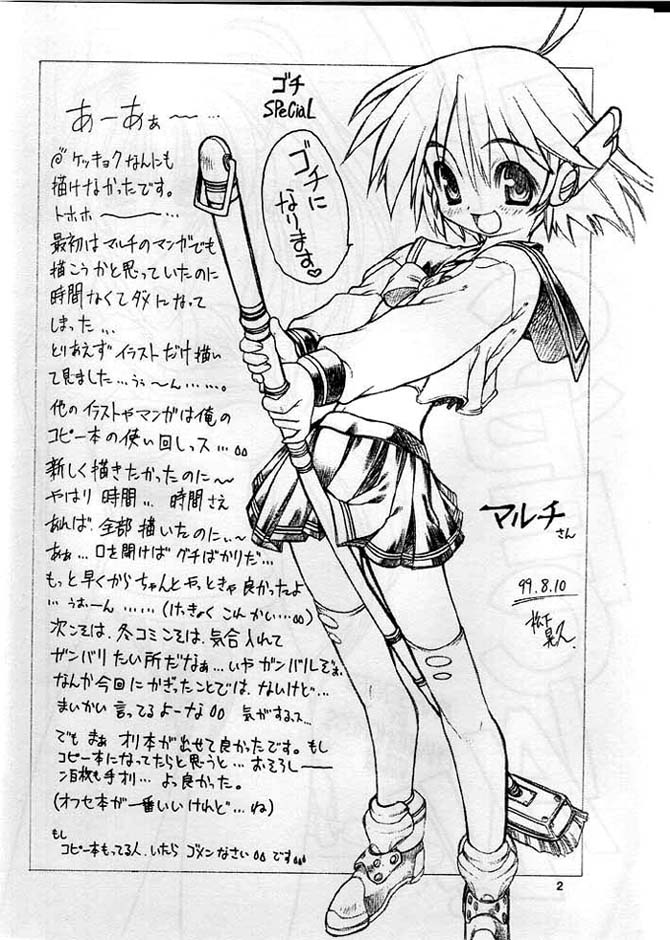 ゴチ
SPeCiaL
あーあぁ〜…
ケッキョクなんにも
描けなかったです。
トホホ〜…
最初はマルチのマンガでも
描こうかと思っていたのに
時間なくてダメになって
しまった…
とりあえずイラストだけ描い
て見ました…うぅ〜ん……。
他のイラストやマンガは俺の
コピー本の使い回しっス…
新しく描きたかったのに〜
やはり時間… 時間さえ
あれば全部描いたのにぃ〜
あぁ…口を開けばグチばかりだ…
もっと早くからちゃんとやっときゃ良かったよ
…うおーん……(けっきょくこんかい…)
次こそは、冬コミこそは、気合入れて
ガンバリたい所だなぁ…いやガンバルぞぉ、
なんか今回にかぎったことでは、ないけど…
まいかい言ってるよーな 気がするっス…
でもまぁオリ本が出せて良かったです。もし
コピー本になってたらと思うと…おそろしー
百枚も手オリ…よっ良かった。
(オフセ本が一番いいけれど…ね)
もし
コピー本もってる人、いたらゴメンなさいです
ゴチに
なります♡
マルチさん
99.8.10
2